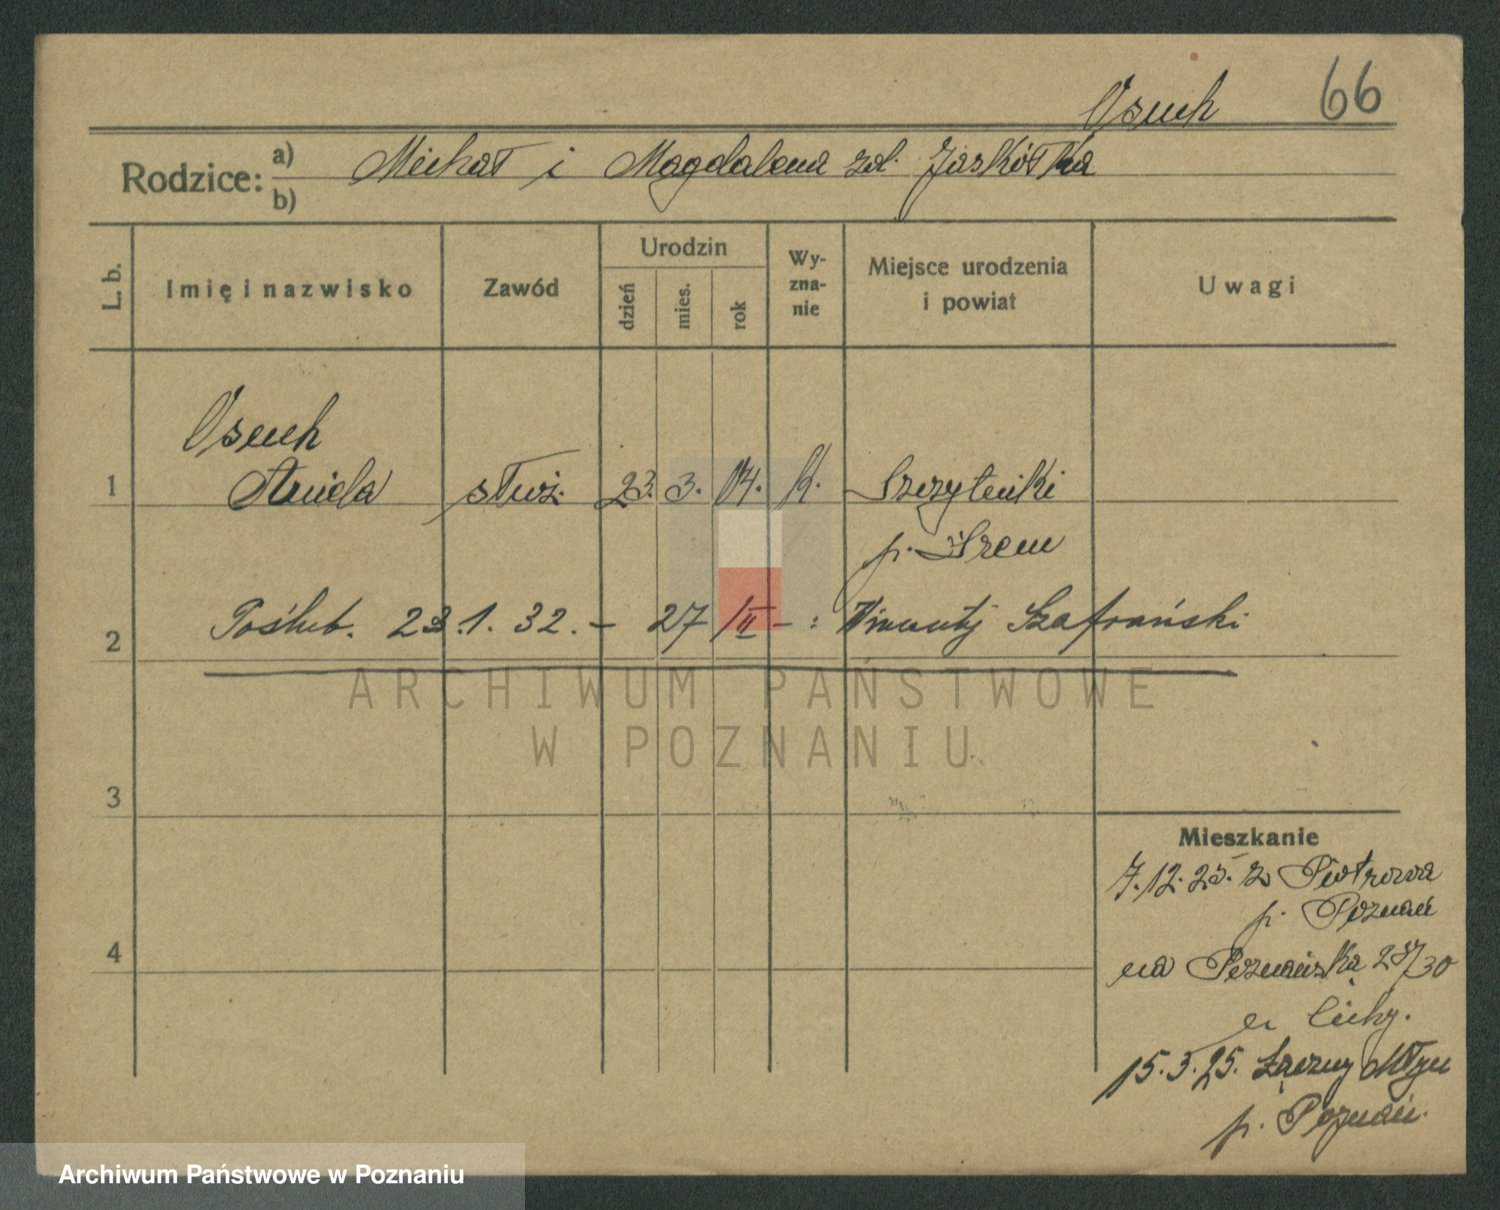 Osuch
66
Rodzice: a) b) Michał i Magdalena zd. Jaskółka
L. b.
Imię i nazwisko
Zawód
Urodzin
dzień
mies.
rok
Wy-
zna-
nie
Miejsce urodzenia
i powiat
Uwagi
Osuch
1 Aniela służ. 23. 3. 04. k. Szczytniki
p. Śrem
2 Poślub. 23.1.32. – 27/II – : Wincenty Szafrański
ARCHIWUM PAŃSTWOWE
W POZNANIU
3
Mieszkanie
7.12.25. z Piotrowa
p. Poznań
4
na Poznańska 30
Cichy.
15.3.25. Łączny Młyn
p. Poznań.
Archiwum Państwowe w Poznaniu